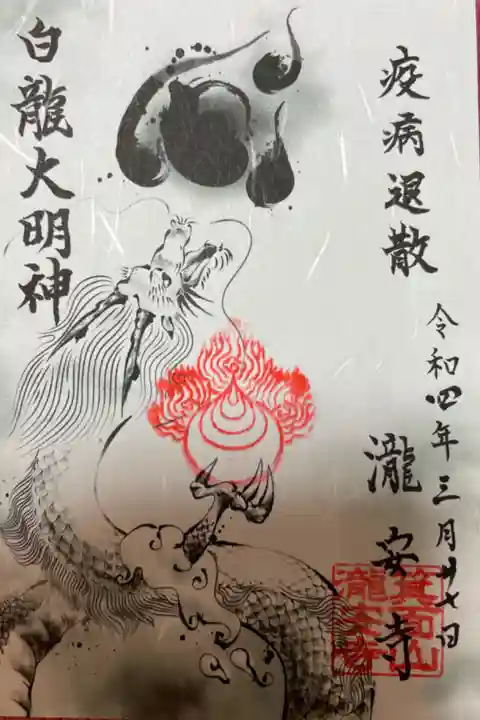 疫病退散
令和四年三月廿七日
瀧安寺
箕面山
瀧安寺
白龍大明神